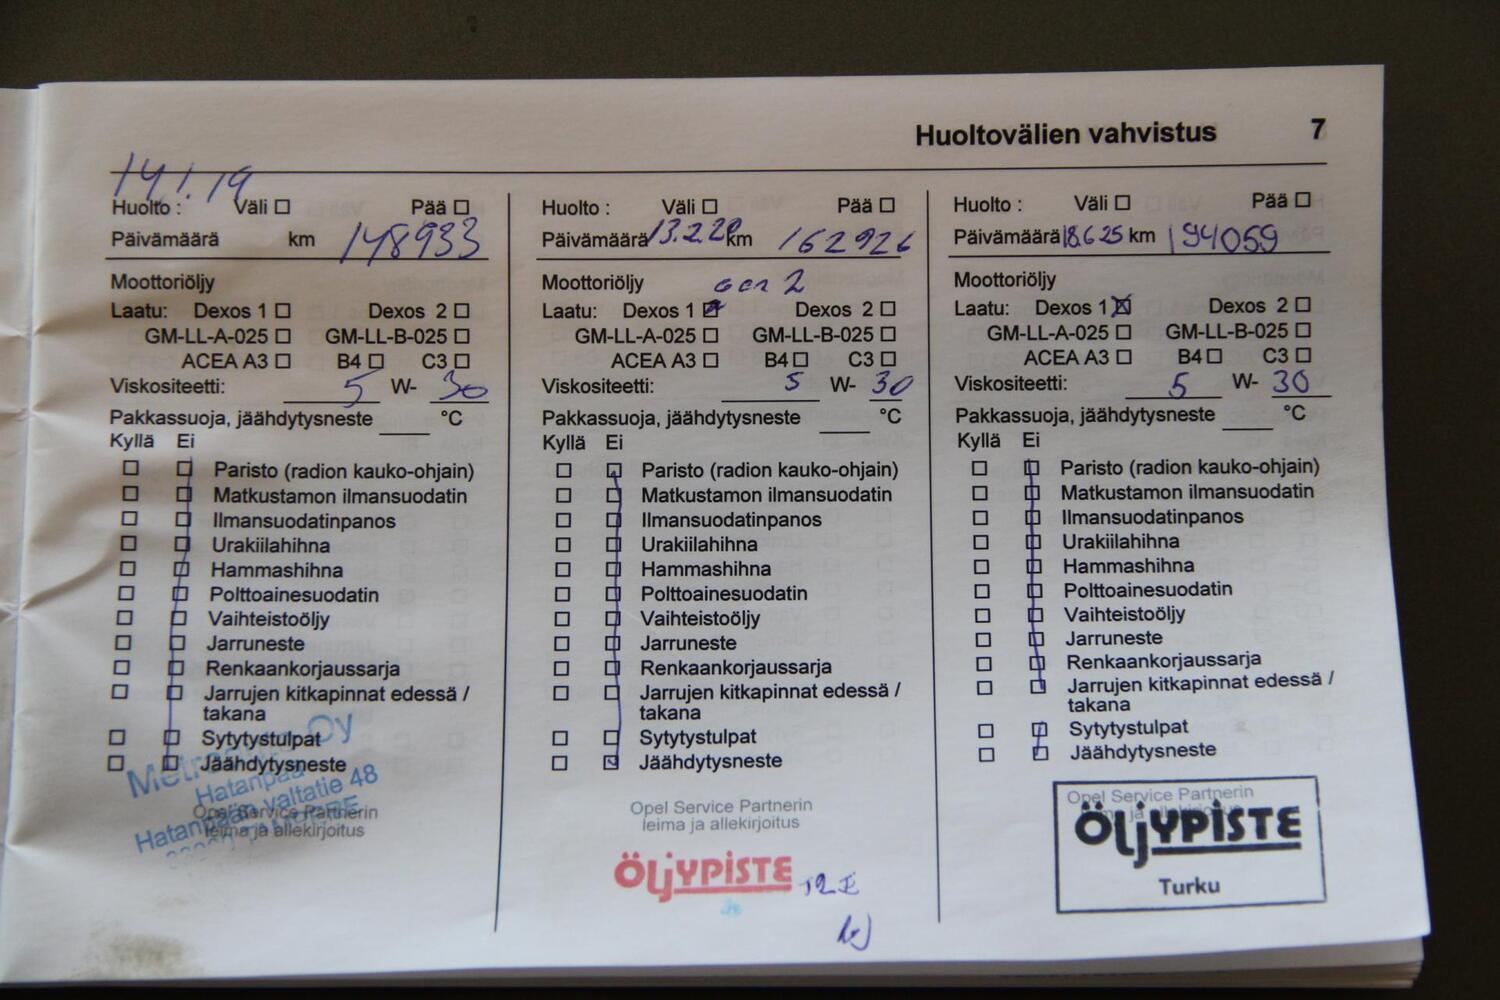 Huoltovälien vahvistus 7
14.1.19
Huolto : Väli ☐ Pää ☐
Päivämäärä km 148933
Moottoriöljy
Laatu: Dexos 1 ☐ Dexos 2 ☐
GM-LL-A-025 ☐ GM-LL-B-025 ☐
ACEA A3 ☐ B4 ☐ C3 ☐
Viskositeetti: 5 W- 30
Pakkassuoja, jäähdytysneste ____ °C
Kyllä Ei
Paristo (radion kauko-ohjain)
Matkustamon ilmansuodatin
Ilmansuodatinpanos
Urakiilahihna
Hammashihna
Polttoainesuodatin
Vaihteistoöljy
Jarruneste
Renkaankorjaussarja
Jarrujen kitkapinnat edessä /
takana
Sytytystulpat
Jäähdytysneste
Oy
Hatanpää
Hatanpään valtatie 48
Opel Service Partnerin
leima ja allekirjoitus
Huolto : Väli ☐ Pää ☐
Päivämäärä 13.2.20 km 162926
Moottoriöljy gen 2
Laatu: Dexos 1 ☒ Dexos 2 ☐
GM-LL-A-025 ☐ GM-LL-B-025 ☐
ACEA A3 ☐ B4 ☐ C3 ☐
Viskositeetti: 5 W- 30
Pakkassuoja, jäähdytysneste ____ °C
Kyllä Ei
Paristo (radion kauko-ohjain)
Matkustamon ilmansuodatin
Ilmansuodatinpanos
Urakiilahihna
Hammashihna
Polttoainesuodatin
Vaihteistoöljy
Jarruneste
Renkaankorjaussarja
Jarrujen kitkapinnat edessä /
takana
Sytytystulpat
Jäähdytysneste
Opel Service Partnerin
leima ja allekirjoitus
ÖLJYPISTE
Huolto : Väli ☐ Pää ☐
Päivämäärä 18.6.25 km 194059
Moottoriöljy
Laatu: Dexos 1 ☒ Dexos 2 ☐
GM-LL-A-025 ☐ GM-LL-B-025 ☐
ACEA A3 ☐ B4 ☐ C3 ☐
Viskositeetti: 5 W- 30
Pakkassuoja, jäähdytysneste ____ °C
Kyllä Ei
Paristo (radion kauko-ohjain)
Matkustamon ilmansuodatin
Ilmansuodatinpanos
Urakiilahihna
Hammashihna
Polttoainesuodatin
Vaihteistoöljy
Jarruneste
Renkaankorjaussarja
Jarrujen kitkapinnat edessä /
takana
Sytytystulpat
Jäähdytysneste
Opel Service Partnerin
ÖLJYPISTE
Turku